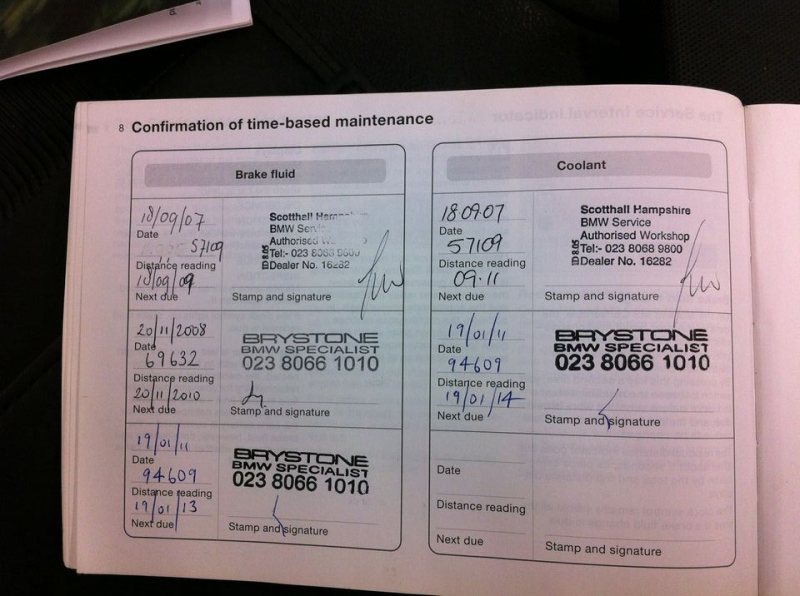 8 Confirmation of time-based maintenance
Brake fluid
18/09/07
Date
57109
Distance reading
18/09/09
Next due
Scotthall
BMW
Authorised
Tel:- 023 8068 9800
Dealer No. 16282
Stamp and signature
20/11/2008
Date
69632
Distance reading
20/11/2010
Next due
BRYSTONE
BMW SPECIALIST
023 8066 1010
Stamp and signature
19/01/11
Date
94609
Distance reading
19/01/13
Next due
BRYSTONE
BMW SPECIALIST
023 8066 1010
Stamp and signature
Coolant
18·09·07
Date
57109
Distance reading
09·11
Next due
Scotthall Hampshire
BMW Service
Authorised Workshop
Tel:- 023 8068 9800
Dealer No. 16282
Stamp and signature
19/01/11
Date
94609
Distance reading
19/01/14
Next due
BRYSTONE
BMW SPECIALIST
023 8066 1010
Stamp and signature
Date
Distance reading
Next due
Stamp and signature